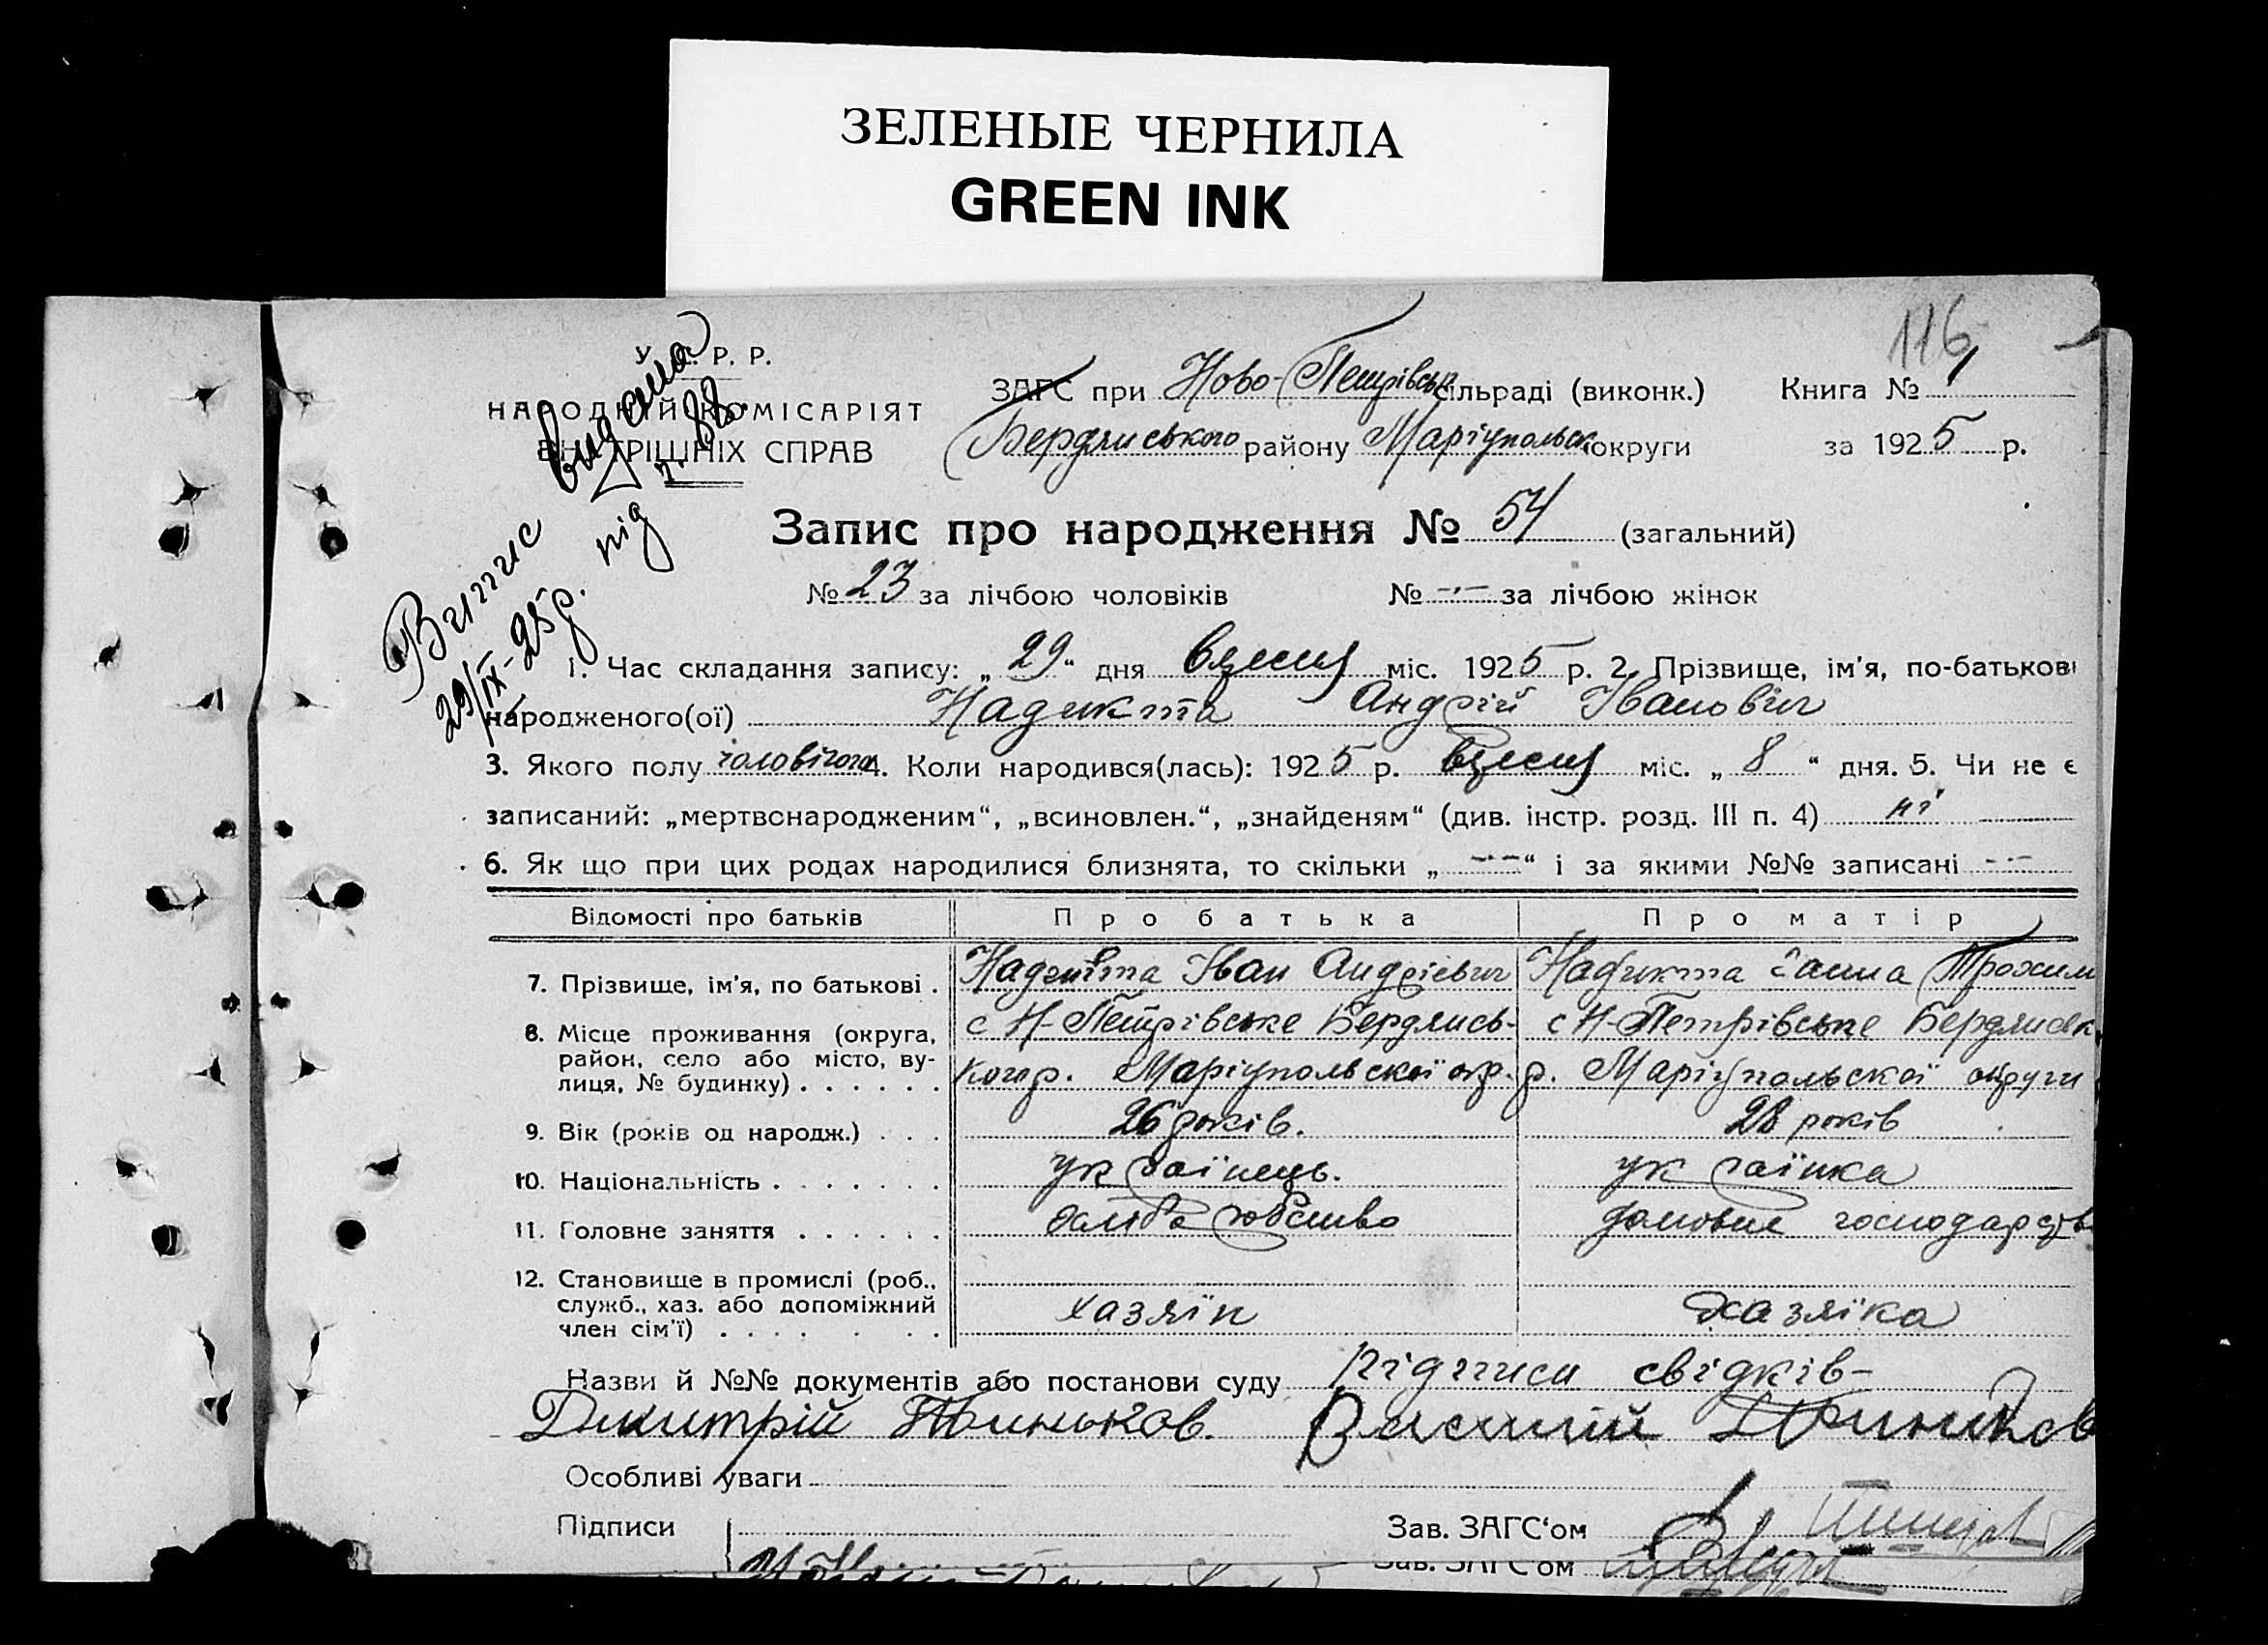 ЗЕЛЕНЫЕ ЧЕРНИЛА
GREEN INK
116
У. С. Р. Р.
НАРОДНІЙ КОМІСАРІЯТ
ВНУТРІШНІХ СПРАВ
ЗАГС при Ново-Петрівськ сільраді (виконк.) Книга № 1
Бердянського району Маріупольськ округи за 1925 р.
Витис видана
29/IX-25р. під
Запис про народження № 54 (загальний)
№ 23 за лічбою чоловіків № -.- за лічбою жінок
1. Час складання запису: „29“ дня вресня міс. 1925 р. 2. Прізвище, ім'я, по-батькові
народженого(ої) Надикта Андрій Іванович
3. Якого полу чоловічого 4. Коли народився(лась): 1925 р. вресня міс. „8“ дня. 5. Чи не є
записаний: „мертвонародженим“, „всиновлен.“, „знайденям“ (див. інстр. розд. III п. 4) ні
6. Як що при цих родах народилися близнята, то скільки „-.-“ і за якими №№ записані -.-
Відомості про батьків Про батька Про матір
7. Прізвище, ім'я, по батькові . Надикта Іван Андрієвич Надикта Ганна Трохим
8. Місце проживання (округа, район, село або місто, вулиця, № будинку) . . . . . . с Н-Петрівське Бердянсь- с Н-Петрівське Бердянськ
кого р. Маріупольскої окр. р. Маріупольскої округи
9. Вік (років од народж.) . . . 26 років. 28 років
10. Національність . . . . . . . українець. українка
11. Головне заняття . . . . . . хліборобство домовне господарств
12. Становище в промислі (роб., служб., хаз. або допоміжний член сім'ї) . . . . . . . хазяїн хазяїка
Назви й №№ документів або постанови суду Підписи свідків-
Дмитрій Василій
Особливі уваги
Підписи Зав. ЗАГС'ом
Зав. ЗАГС'ом